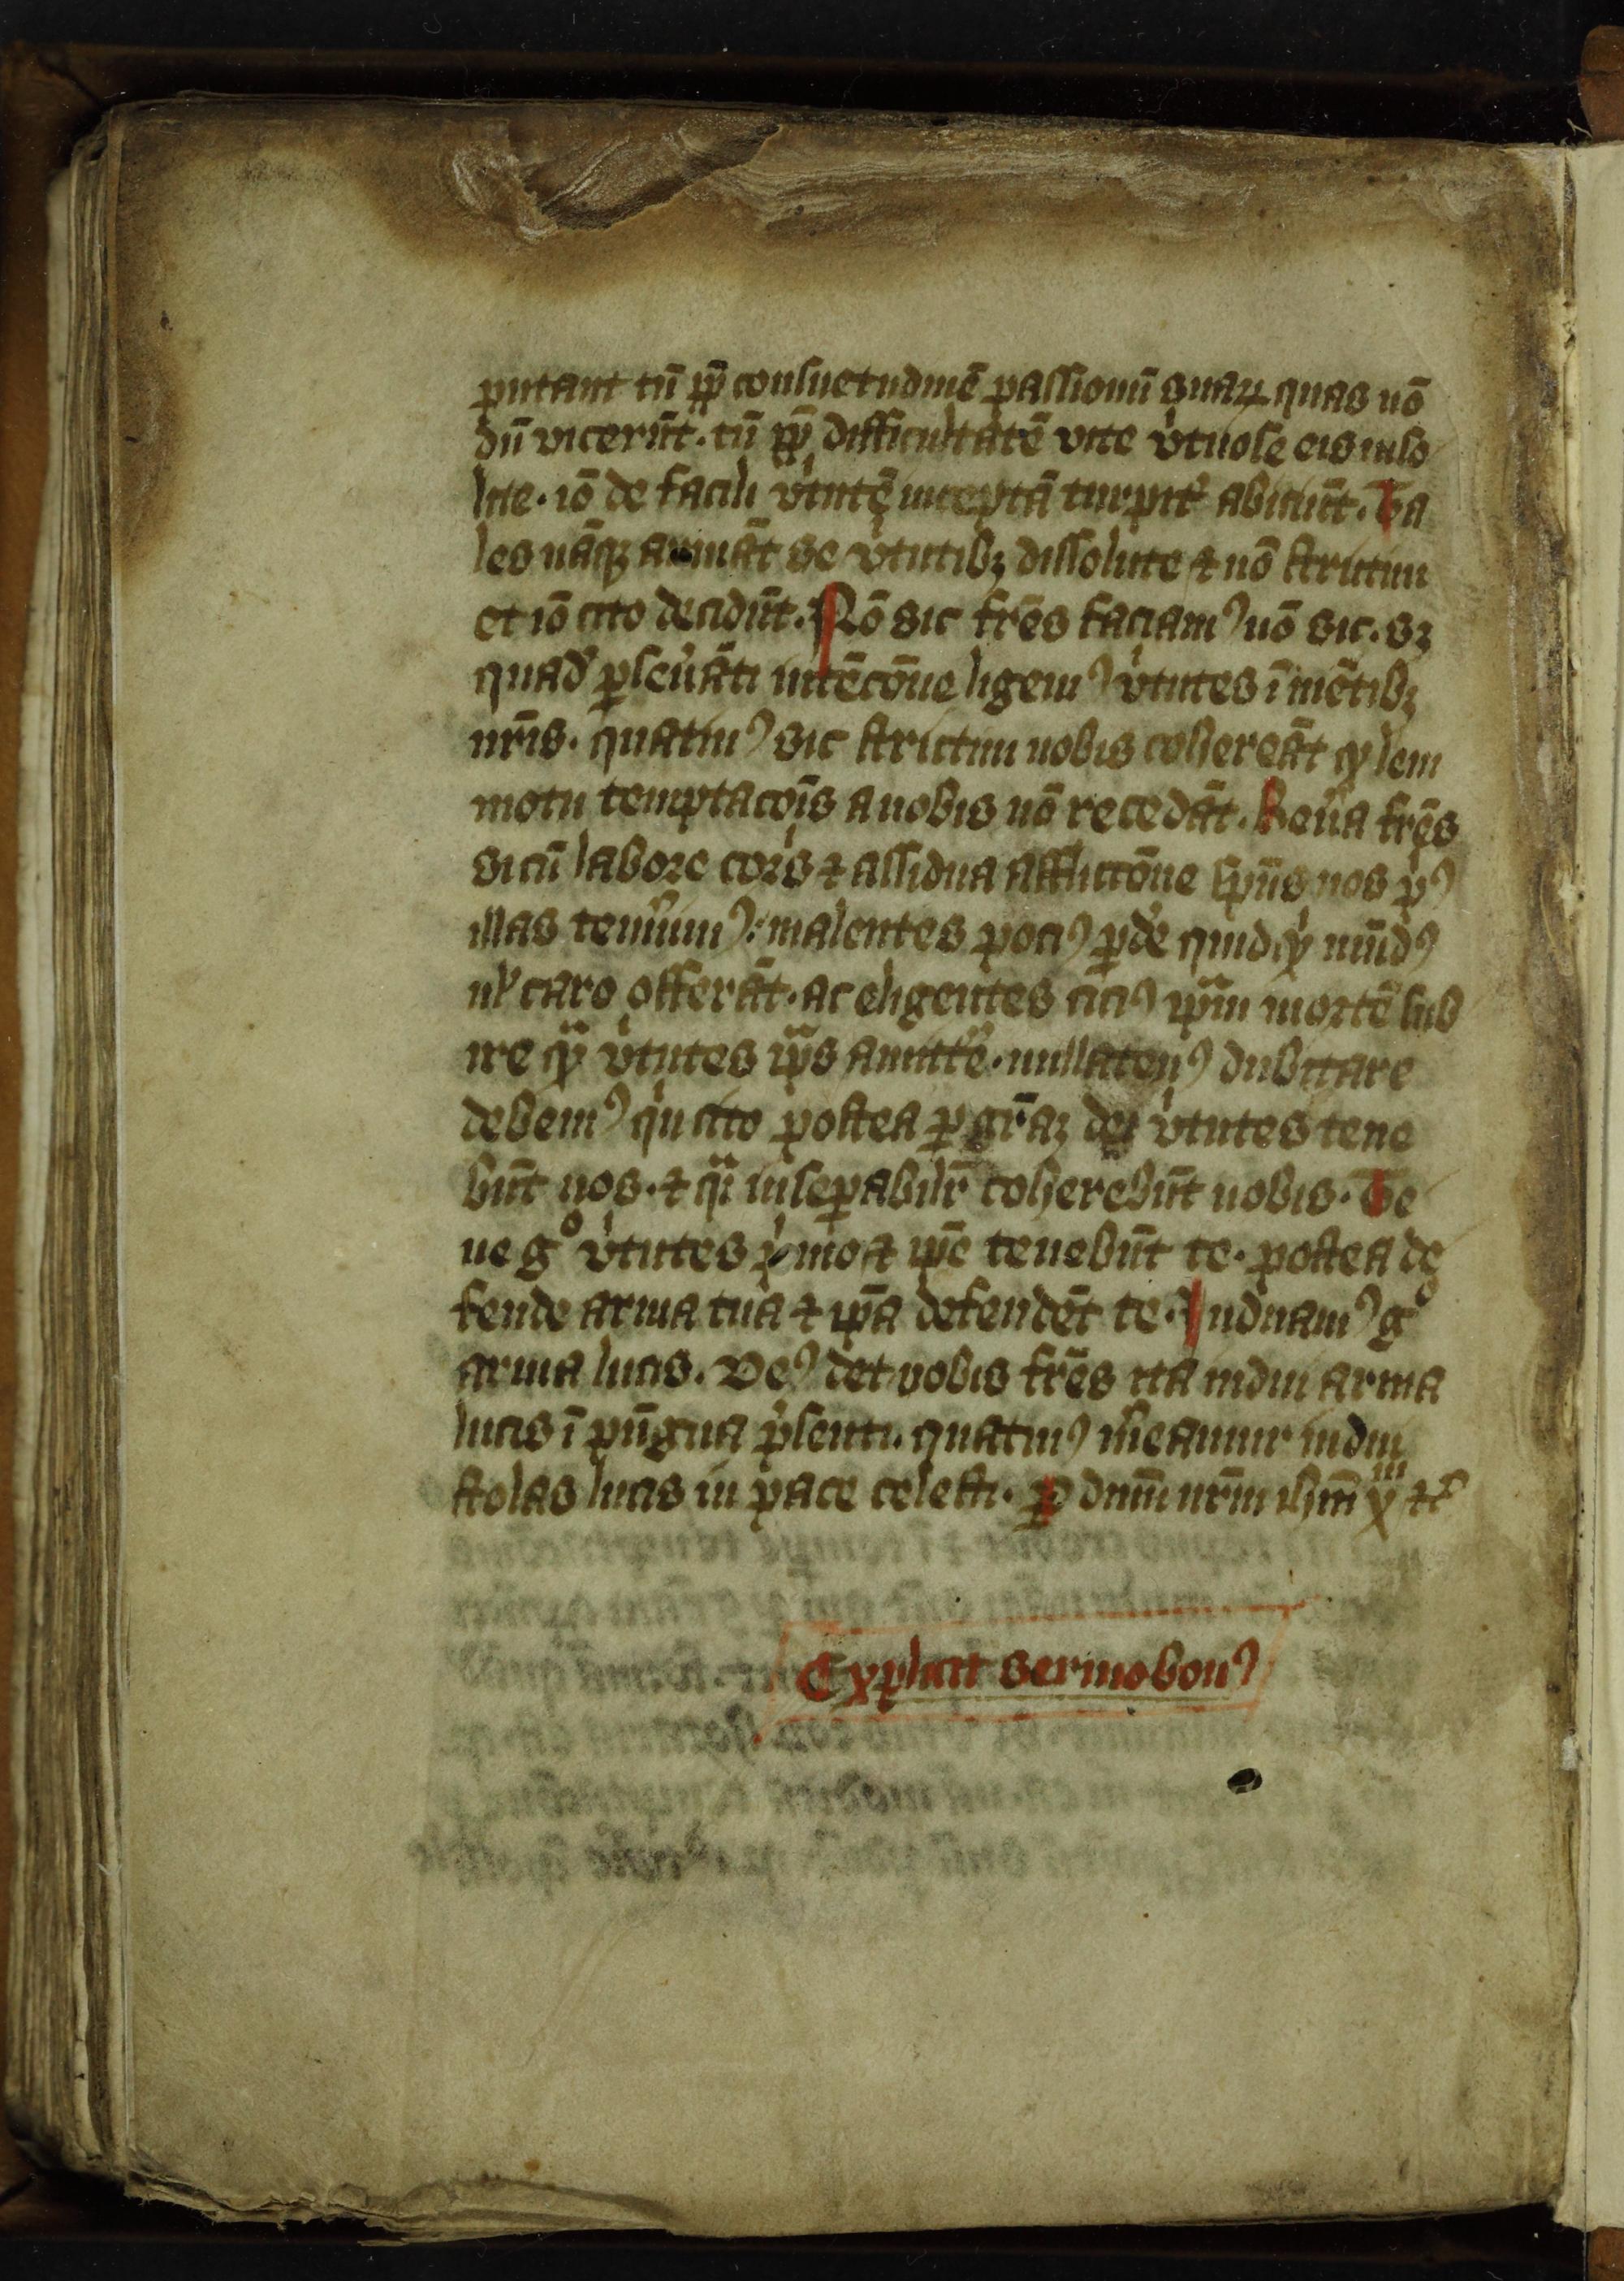 putant tū ꝓp̄ consuetudinē passionū suaꝝ quas nō
dū vicerūt. tū ꝓp̄ difficultatē vite v̓tuose eis inso
lite. iō de facili v̓tutē inceptā turpit̓ abiciūt. Ta
les nāqꝫ armāt se v̓tutibꝫ dissolute ⁊ nō strictim
et iō cito decidūt. Nō sic fr̄es faciamꝰ nō sic. sꝫ
quad̓ ꝑseu̓āti intēcōne ligemꝰ v̓tutes ī mētibꝫ
nr̄is. quatinꝰ sic strictim nobis cohereāt qͣ leui
motu temptacōis a nobis nō recedāt. Reu̓a fr̄es
si cū labore cor̄s ⁊ assidua afflictōne sp̄us nos pͥꝰ
illas tenuim̓ꝰ: malentes pociꝰ ꝑde̓ quidqͥd mūdꝰ
ul̓ caro offerāt. ac eligentes ciciꝰ ip̄am mortē sub
ire qͣ v̓tutes ip̄as amitte̓. nullatenꝰ dubitare
debemꝰ qͥn cito postea ꝑ gr̄aꝫ dei v̓tutes tene
būt nos. ⁊ qͣi insepabilr̄ coherebūt nobis. Te
ne gͦ v̓tutes pͥmo ⁊ ip̄e tenebūt te. postea de
fende arma tua ⁊ ip̄a defendēt te. Induamꝰ gͦ
arma lucis. Deꝰ det vobis fr̄es ita indui arma
lucis ī pūgna p̓senti. quatinꝰ m̓eamur indui
stolas lucis in pace celesti. ꝑ dn̄m nr̄m ih̄m x̄m ⁊c̓
Explicit sermo bonꝰ